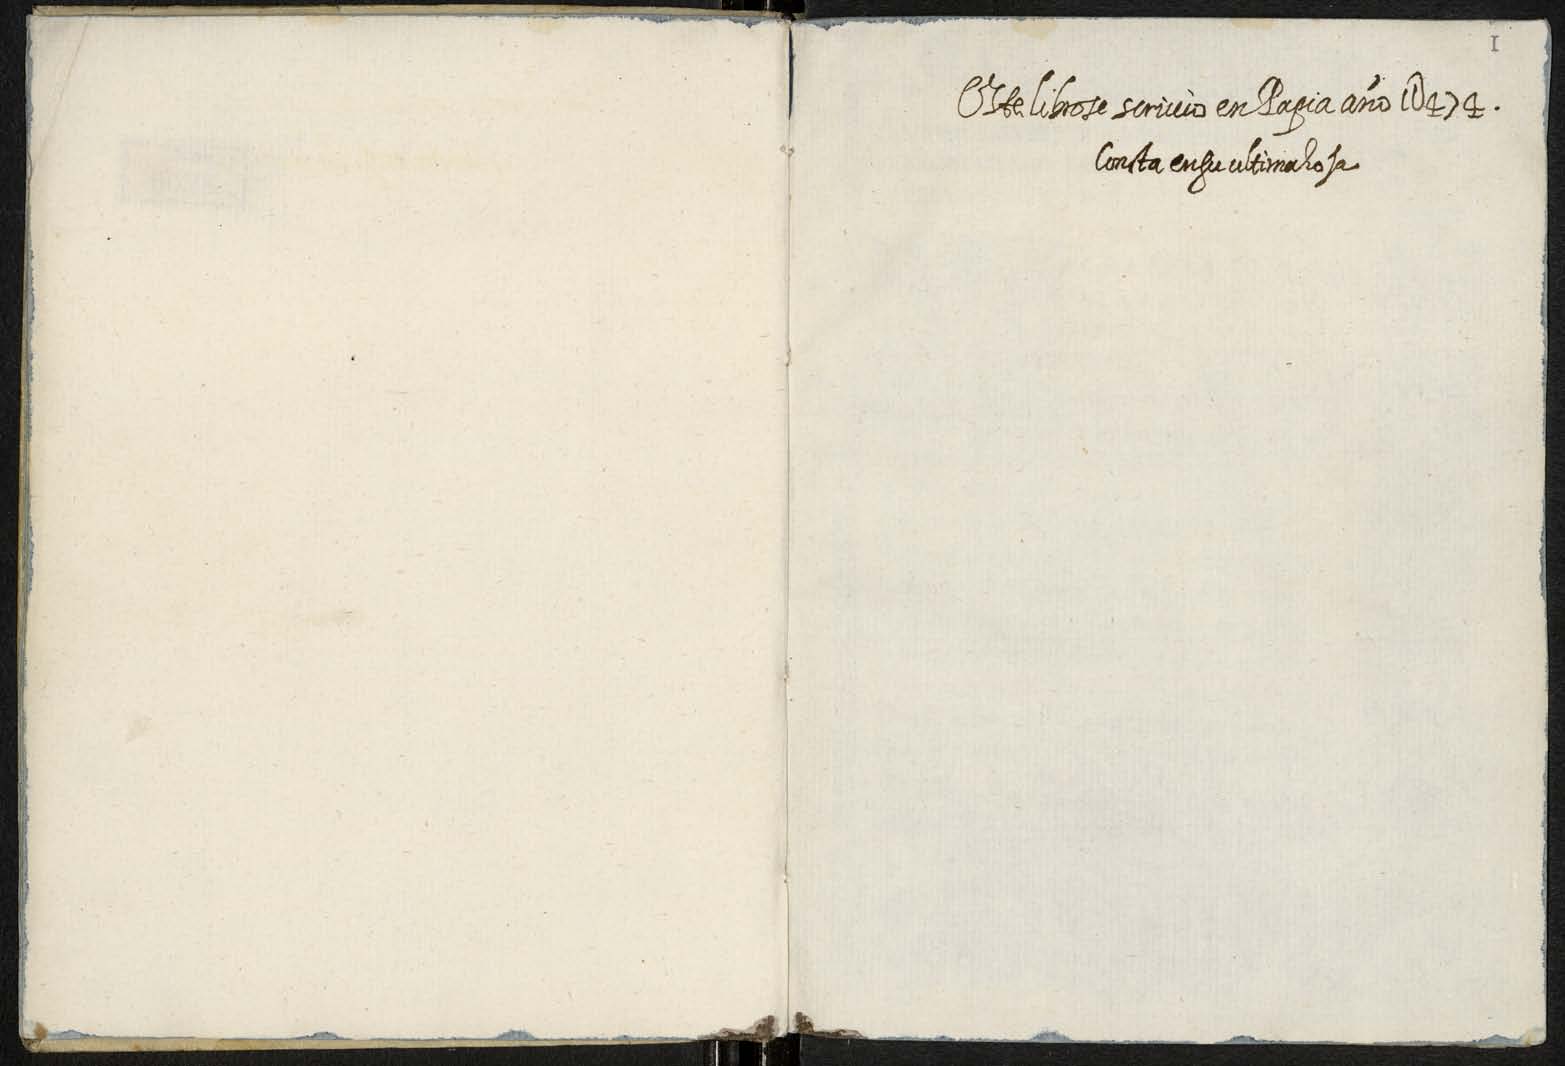 1
Este libro se scriuio en Papia año 1474.
Consta en su ultima hoja